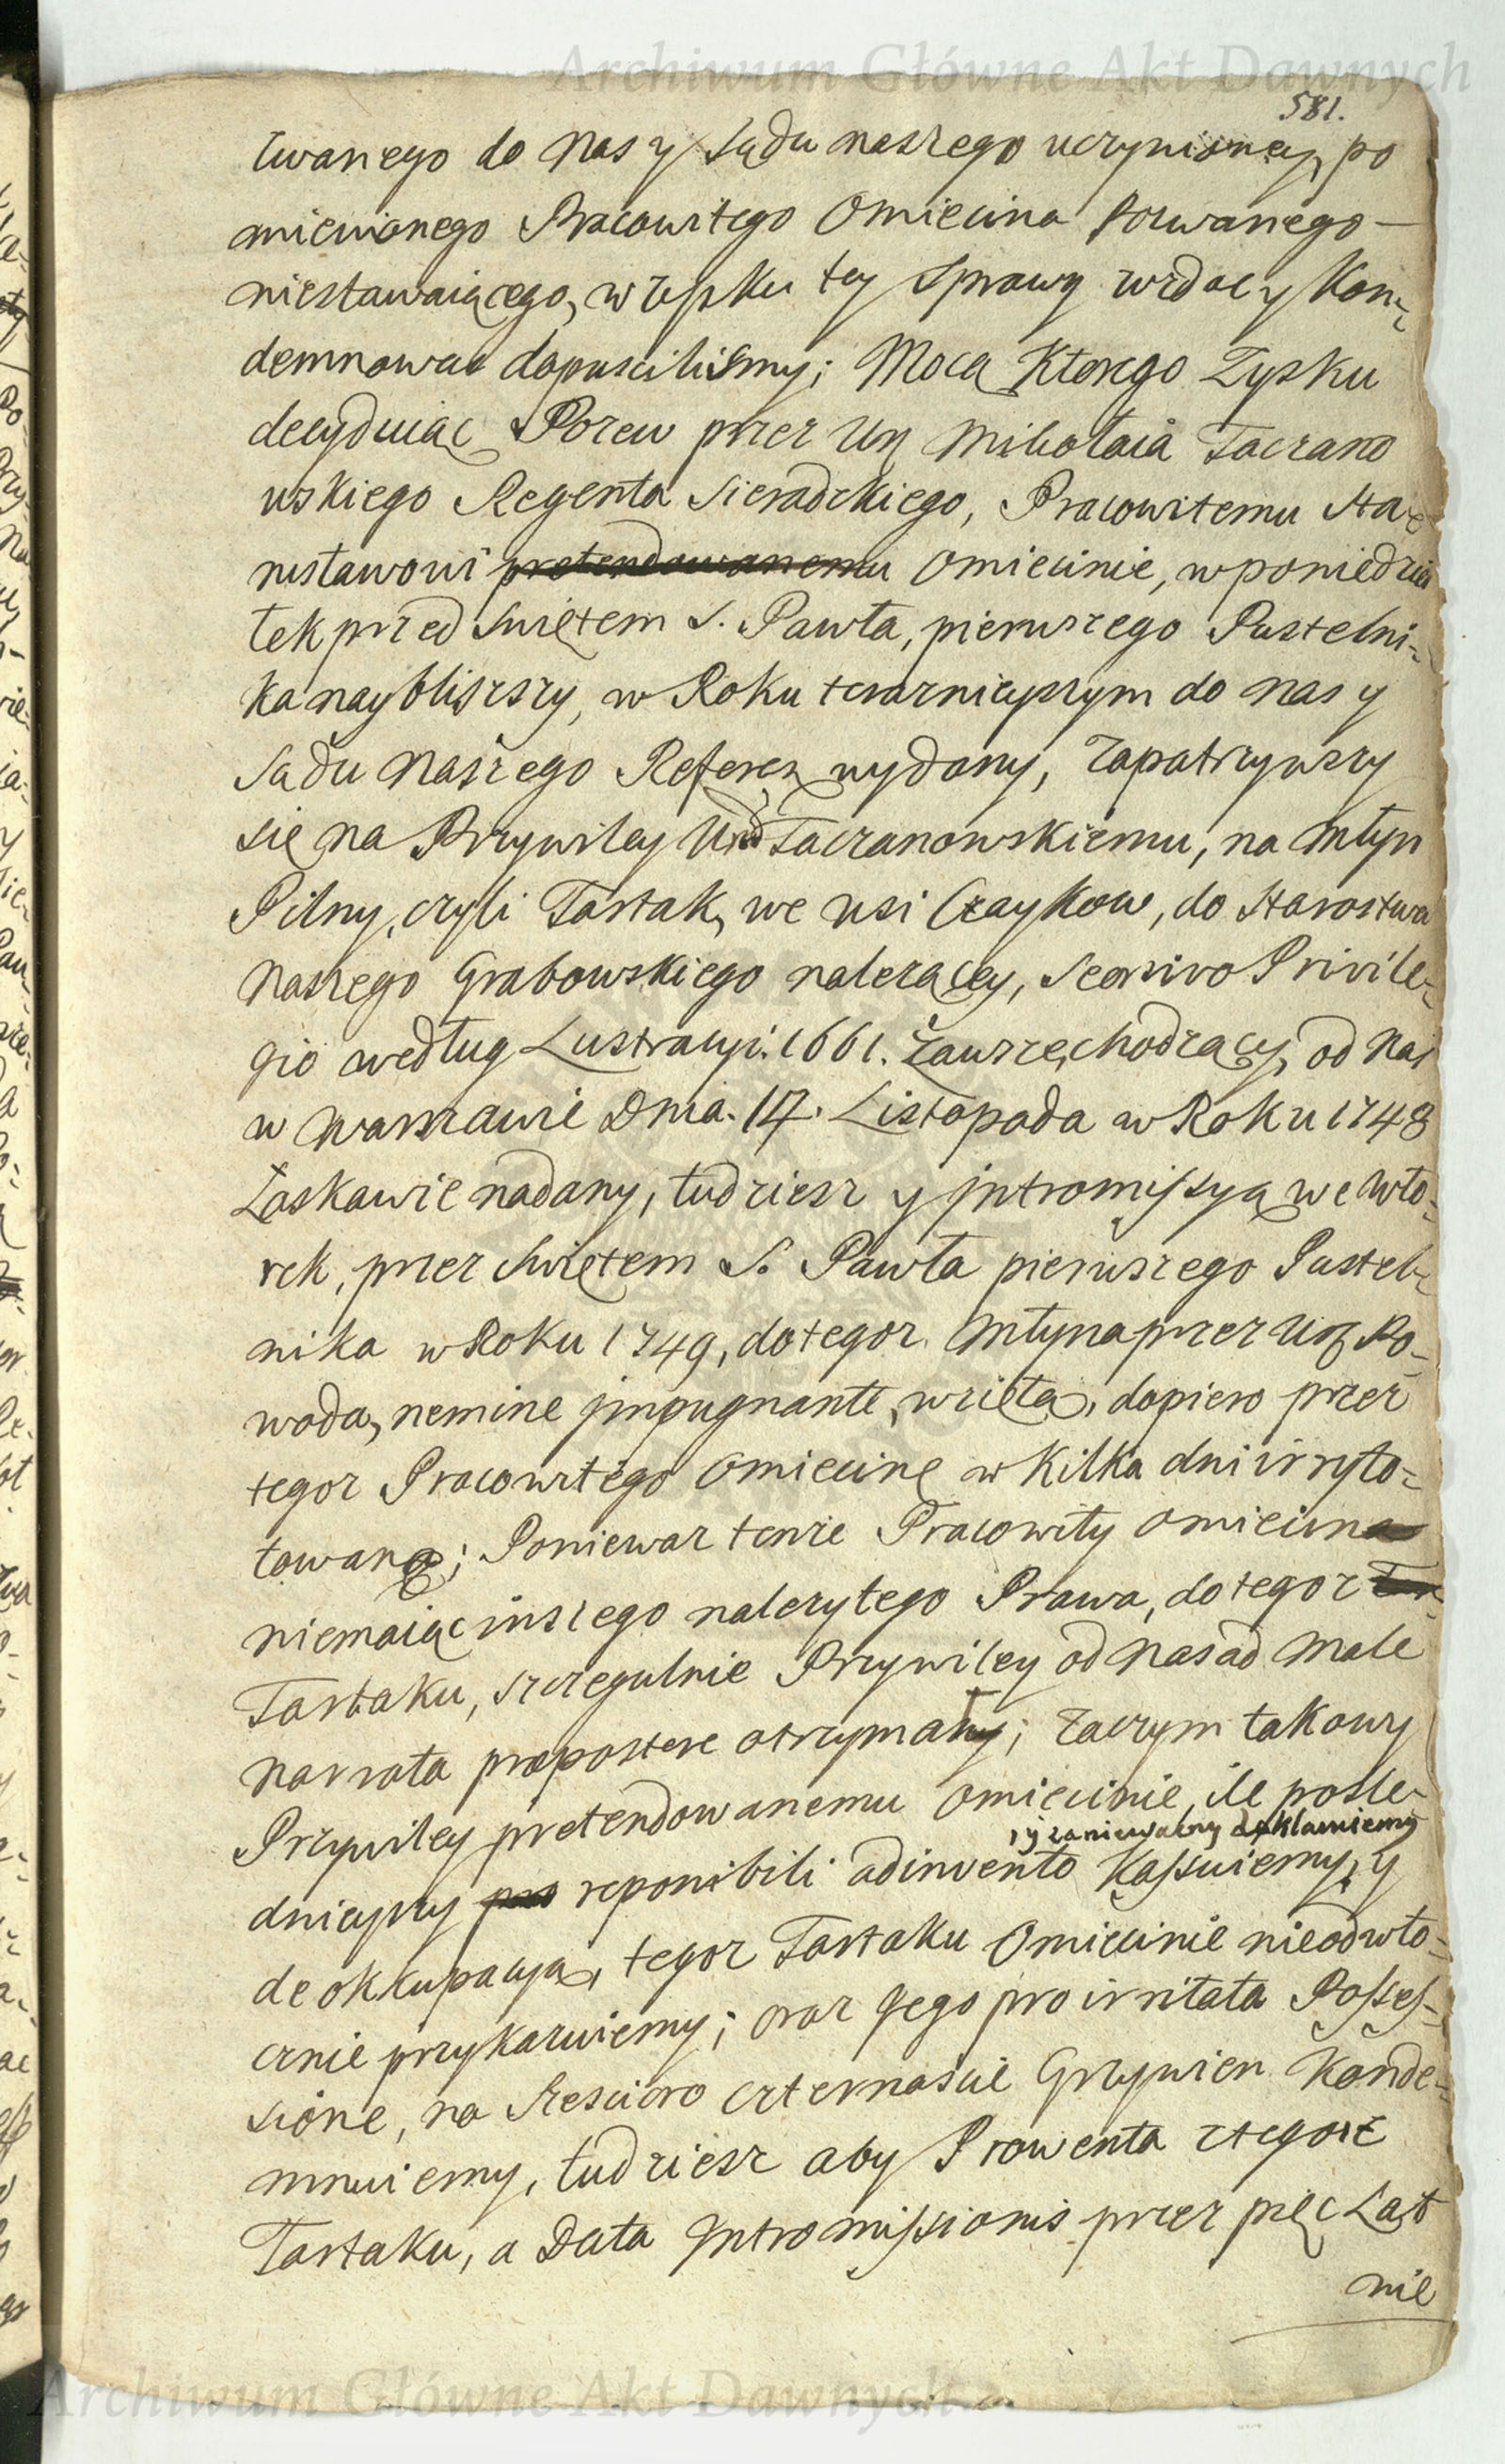 Archiwum Główne Akt Dawnych
581.
zwanego do Nas y Sądu naszego uczynioney, po
mienionego Pracowitego Omiecina Pozwanego —
niestawaiącego, w zysku tey Sprawy wzdać y Kon-
demnować dopuscilismy; Mocą Ktorego Zysku
decyduiąc Pozew przez Ur Mikołaia Taczano
wskiego Regenta Sieradzkiego, Pracowitemu Sta-
nisławowi pretendowanemu Omiecinie, w poniedzia
łek przed Swiętem S. Pawła, pierwszego Pustelni-
ka nayblizszy, w Roku teraznieyszym do nas y
Sądu Naszego Referen wydany, zapatrzywszy
się na Przywiley Ur Taczanowskiemu, na Młyn
Pilny, czyli Tartak, we wsi Czaykow, do Starostwa
Naszego Grabowskiego nalezącey, Seorsivo Privile-
gio według Lustracyi. 1661. zawsze chodzący, od Nas
w Warszawie Dnia. 17. Listopada w Roku 1748
Łaskawie nadany, tudziesz y jntromissyą we wto-
rek, przez Swiętem S. Pawła pierwszego Pustel-
nika w Roku 1749, do tegoz Młyna przez Ur Po-
woda, nemine jmpugnante, wziętą, dopiero przez
tegoz Pracowitego Omiecinę w Kilka dni irryto-
towaną; Poniewaz tenze Pracowity Omiecina
niemaiąc inszego nalezytego Prawa, do tegoz
Tartaku, szczegulnie Przywiley od Nas ad Male
Narrata prepostere otrzymany; zaczym takowy
Przywiley pretendowanemu Omiecinie, ile posle-
, y zaniewazny deklaruiemy
dnieyszy pro reponibili adinvento Kassuiemy, y
deokkupacyą, tegoz Tartaku Omiecinie nieodwło-
cznie przykazuiemy; oraz Jego pro irritata Posses-
sione, na Szescioro czternascie Grzywien Konde-
mnuiemy, tudziesz aby Prowenta z tegosz
Tartaku, a Data Jntromissionis przez pięc Lat
nie
Archiwum Główne Akt Dawnych